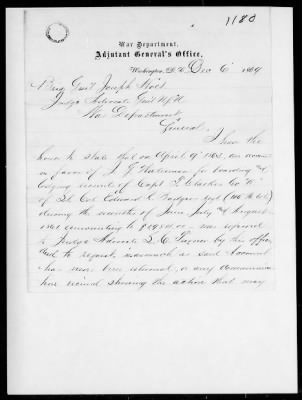 1180
War Department,
Adjutant General's Office,
Washington, D.C. Dec 6" 1869
Brig Gen'l Joseph Holt
Judge Advocate Gen'l U.S.A.
War Department
General.
I have the
honor to state that on April 9" 1863, an account
in favor of J. F. for boarding and
lodging recruits of Capt. Co. "K"
of Col Edward Regt (
during the months of June, July and August
1861 amounting to was referred
to Judge Advocate L. C. Turner by this office
to report, inasmuch as said account
has never been returned, or any communication
received showing the action that may